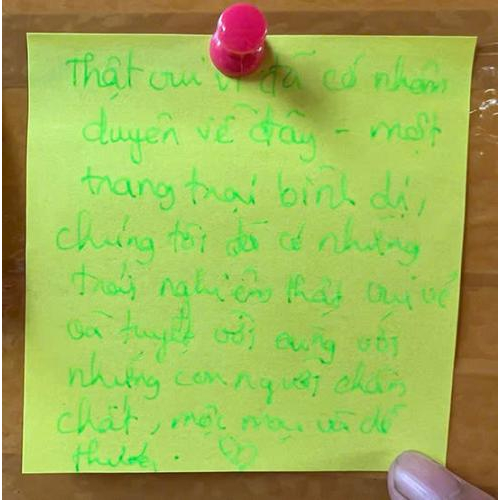 Thật vui vì đã có nhân
duyên về đây - một
trang trại bình dị,
chúng tôi đã có những
trải nghiệm thật vui vẻ
và tuyệt vời cùng với
những con người chân
chất, mộc mạc và dễ
thương.